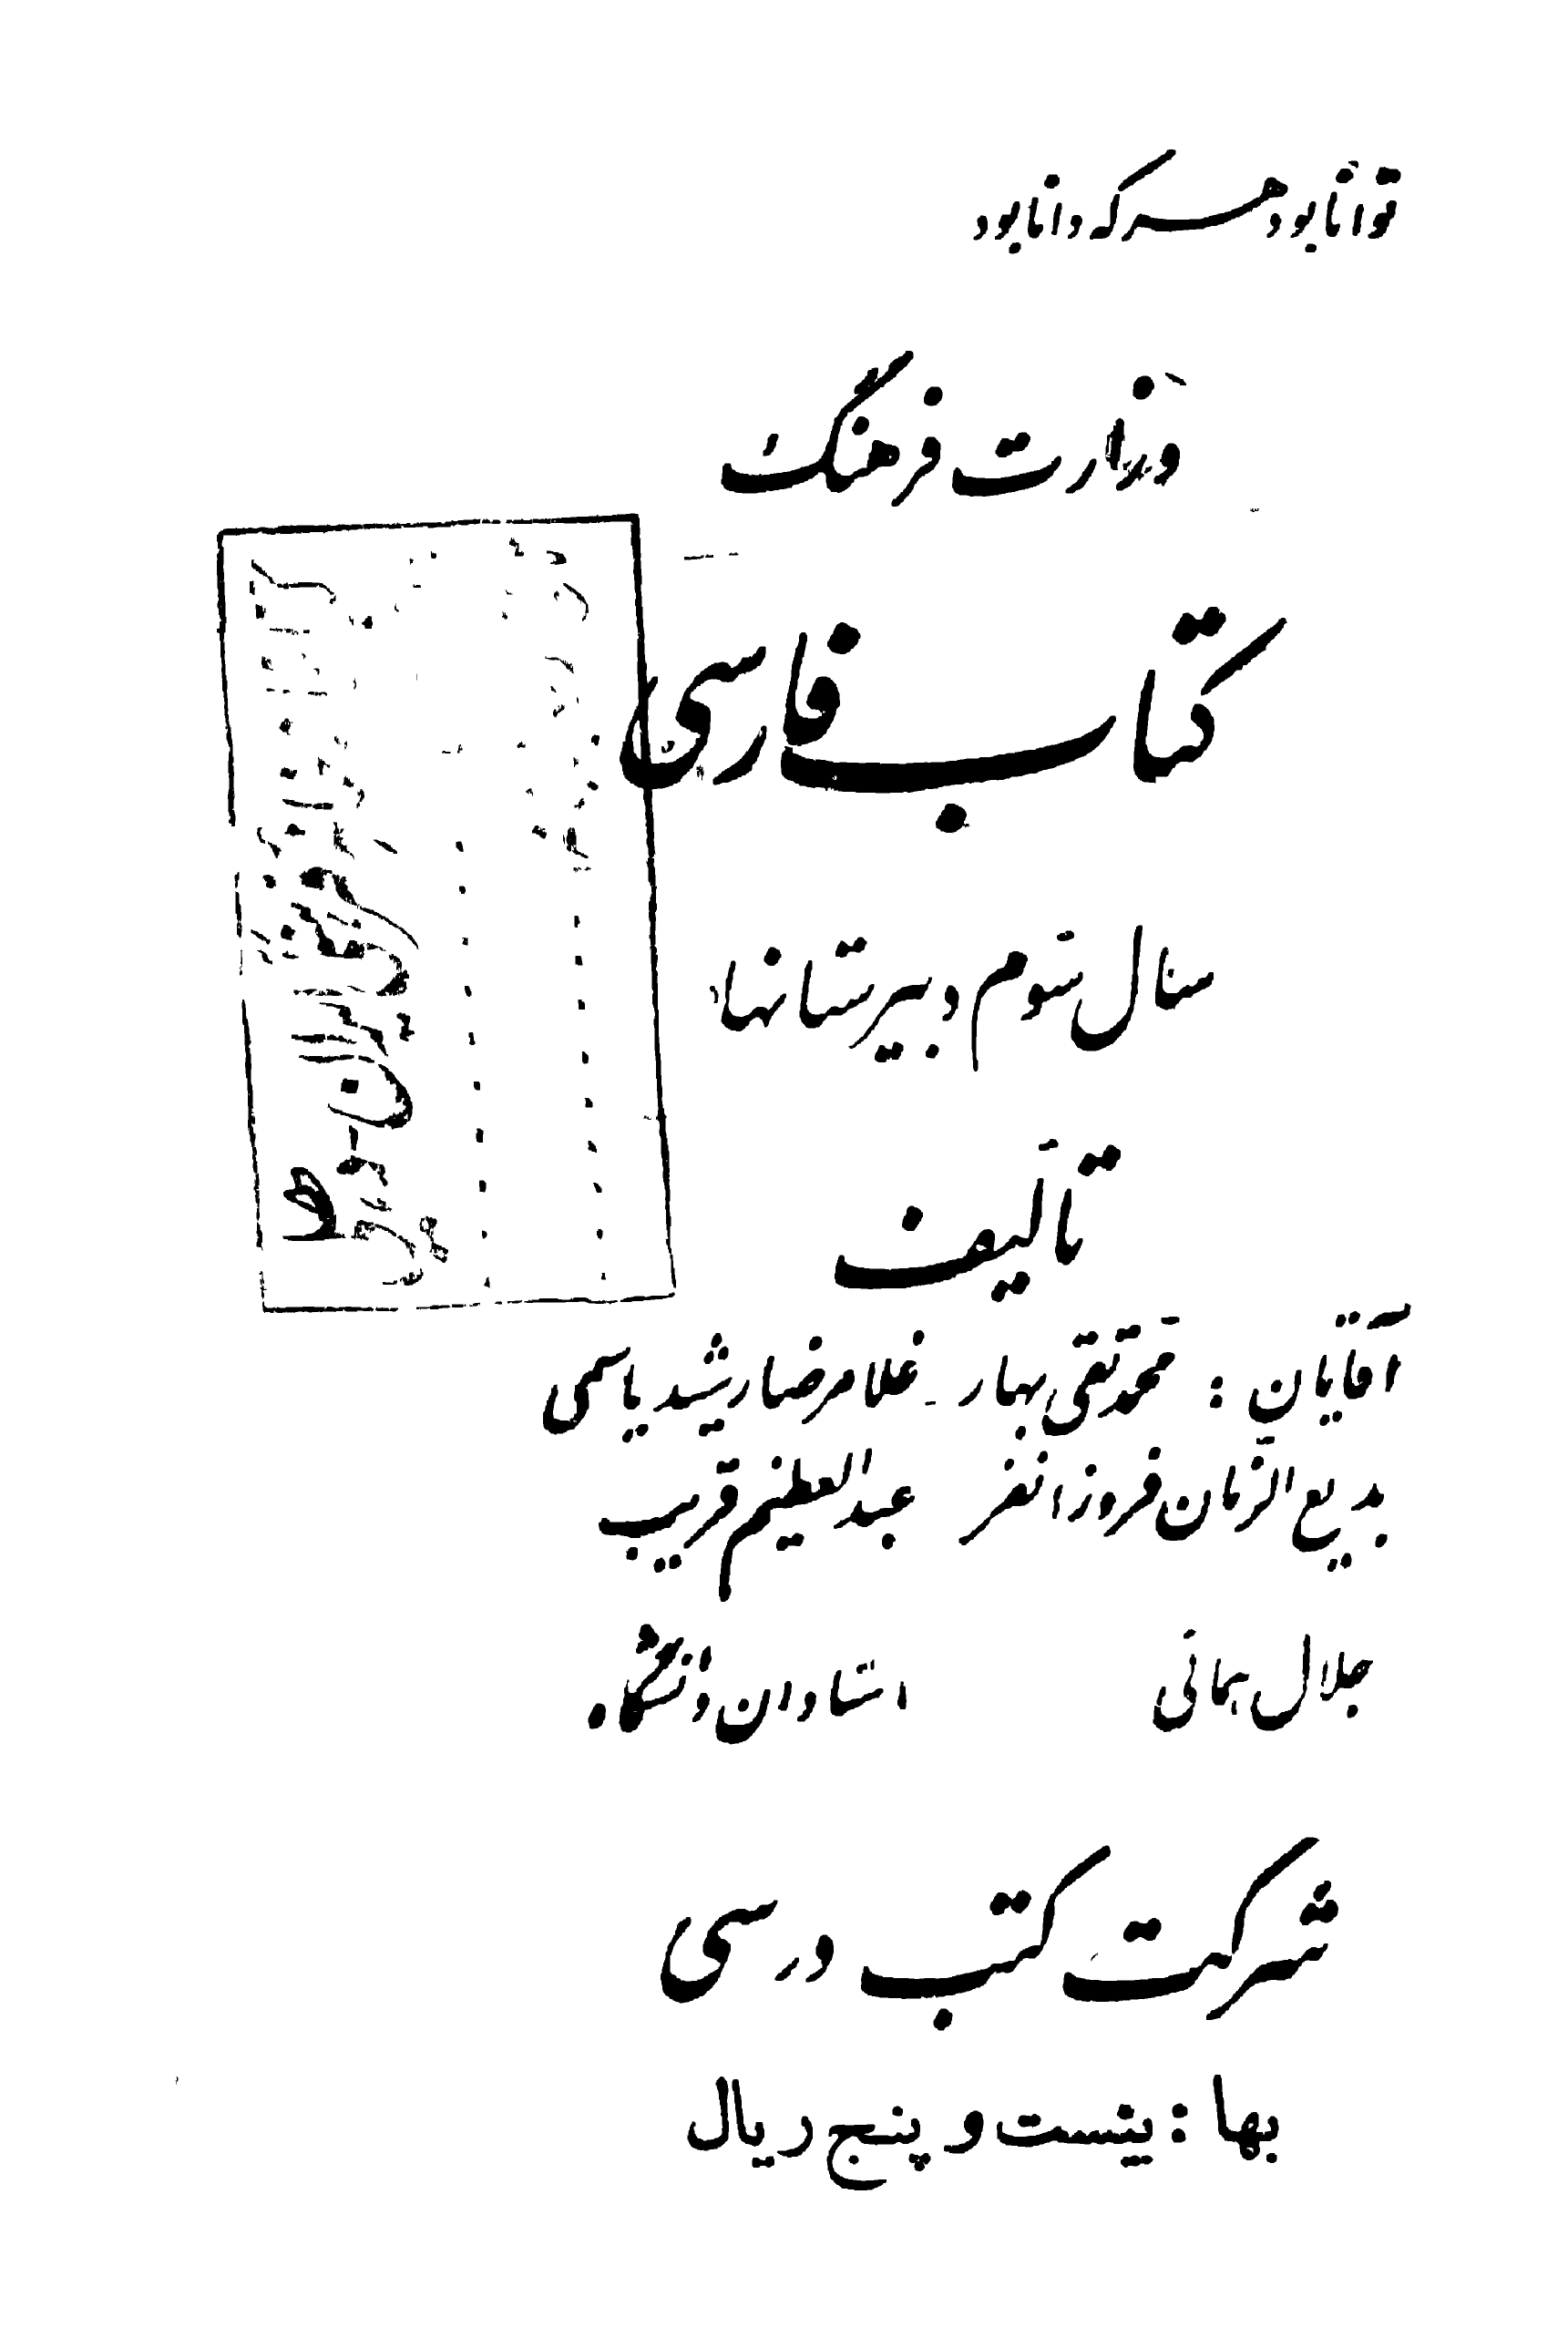 توانا بود هر که دانا بود
وزارت فرهنگ
کتاب فارسی
سال سوم دبیرستانها
تألیف
آقایان : محمد تقی بهار - غلامرضا رشید یاسمی
بدیع الزمان فروزانفر عبدالعظیم قریب
جلال همائی استادان دانشگاه
شرکت کتب درسی
بها : بیست و پنج ریال